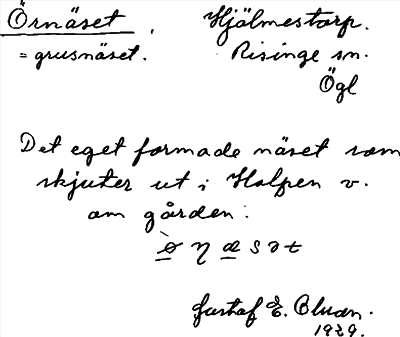 Örnäset, Hjälmestorp.
= grusnäset. Risinge sn.
Ögl
Det eget formade näset som
skjuter ut i Holpen v.
om gården:
Gustaf E. Bluan.
1929.